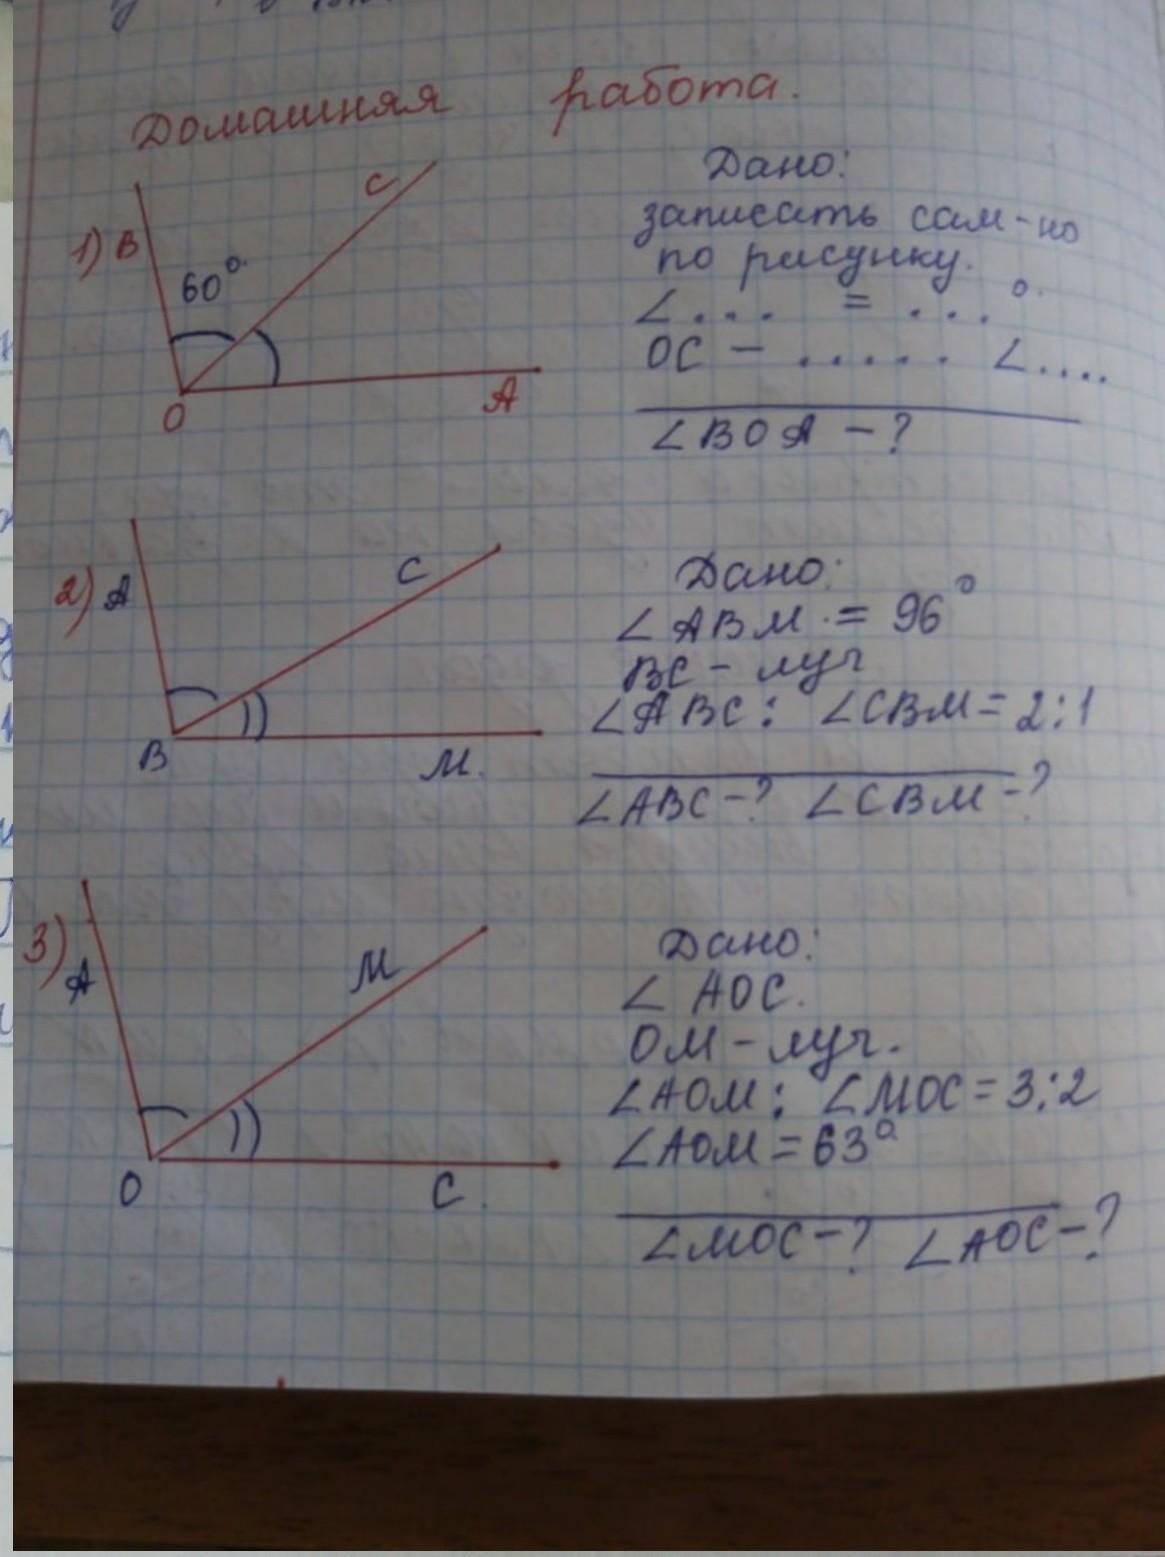 Домашняя работа.
1) B
C
60°
O
A
Дано:
записать сам-но
по рисунку.
∠... = ...°
OC - ..... ∠....
∠BOA - ?
2) A
C
B
M.
Дано:
∠ABM = 96°
BC - луч
∠ABC : ∠CBM = 2:1
∠ABC - ? ∠CBM - ?
3) A
M
O
C.
Дано:
∠ AOC.
OM - луч.
∠AOM : ∠MOC = 3:2
∠AOM = 63°
∠MOC - ? ∠AOC - ?